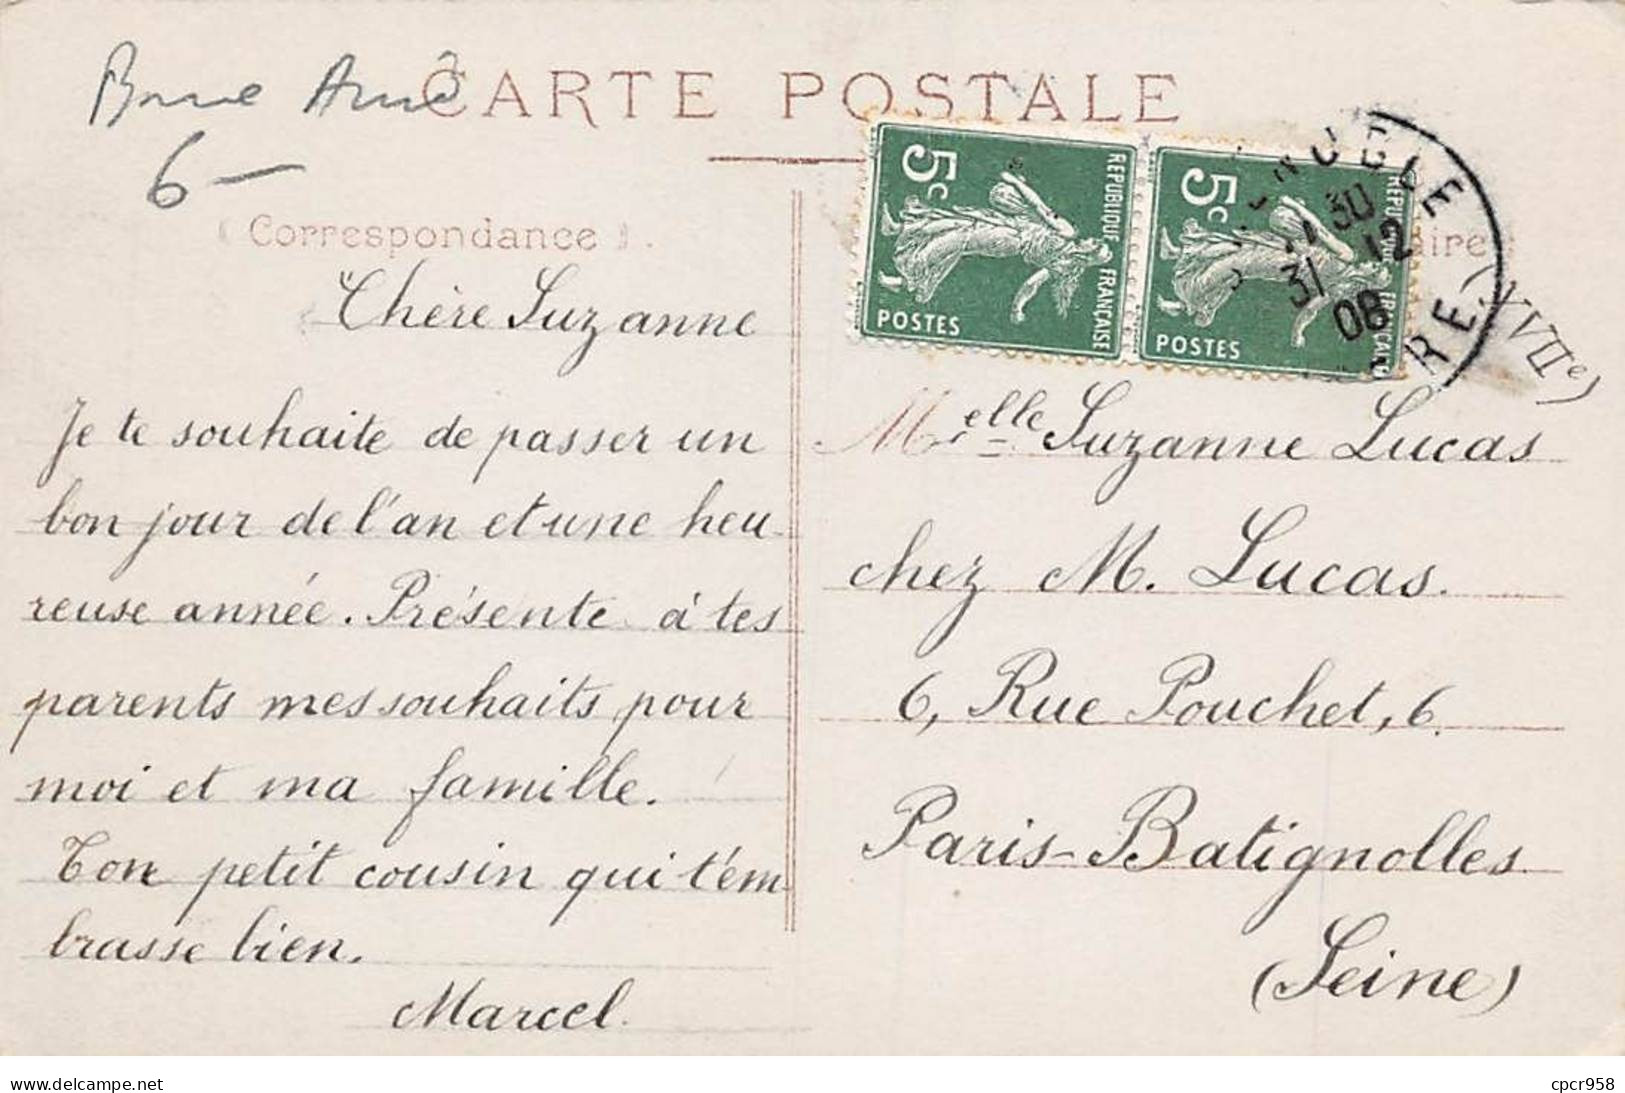 Bonne Année
6 —
CARTE POSTALE
Correspondance
Chère Suzanne
Je te souhaite de passer un
bon jour de l'an et une heu
reuse année. Présente à tes
parents mes souhaits pour
moi et ma famille.
Ton petit cousin qui t'em
brasse bien.
Marcel.
5c REPUBLIQUE FRANÇAISE POSTES
5c REPUBLIQUE FRANÇAISE POSTES
11 30
31 12
08
(XVIIe)
Melle Suzanne Lucas
chez M. Lucas.
6, Rue Pouchet, 6.
Paris-Batignolles
(Seine)
delcampe.net
cpcr958